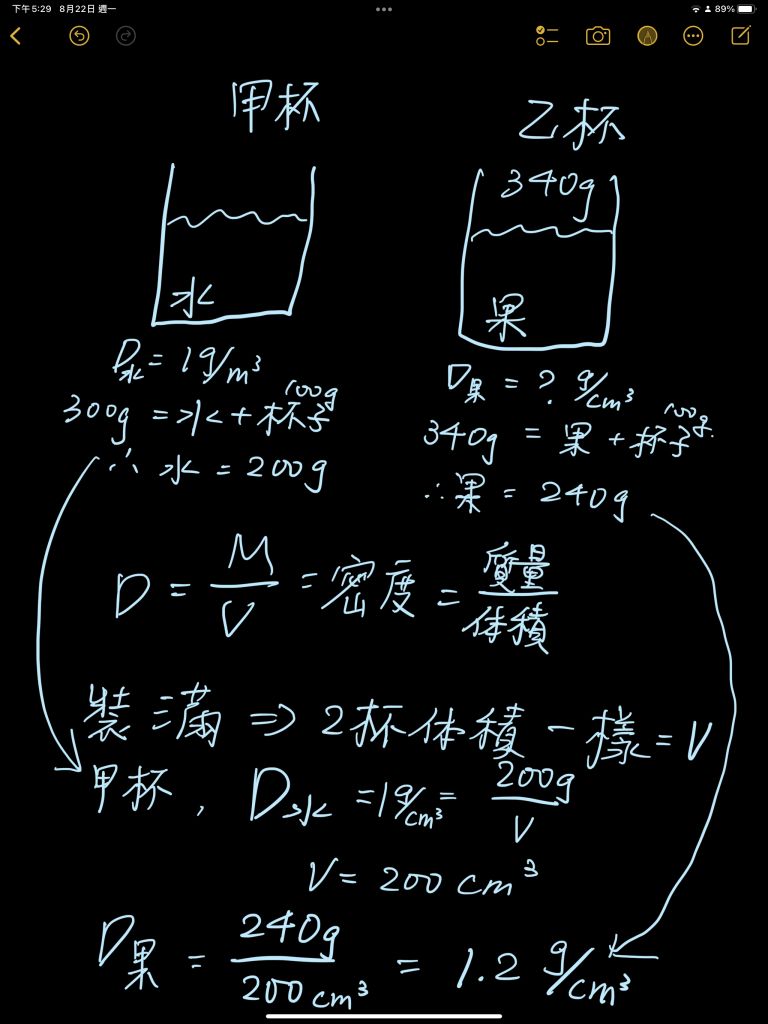 下午5:29 8月22日 週一 89%
甲杯
乙杯
340g
水
果
D水 = 1g/m³
300g = 水 + 杯子 100g
∴ 水 = 200g
D果 = ? g/cm³
340g = 果 + 杯子 100g.
∴ 果 = 240g
D = M/V = 密度 = 質量/体積
裝滿 => 2杯体積一樣 = V
甲杯, D水 = 1g/cm³ = 200g/V
V = 200 cm³
D果 = 240g/200cm³ = 1.2 g/cm³